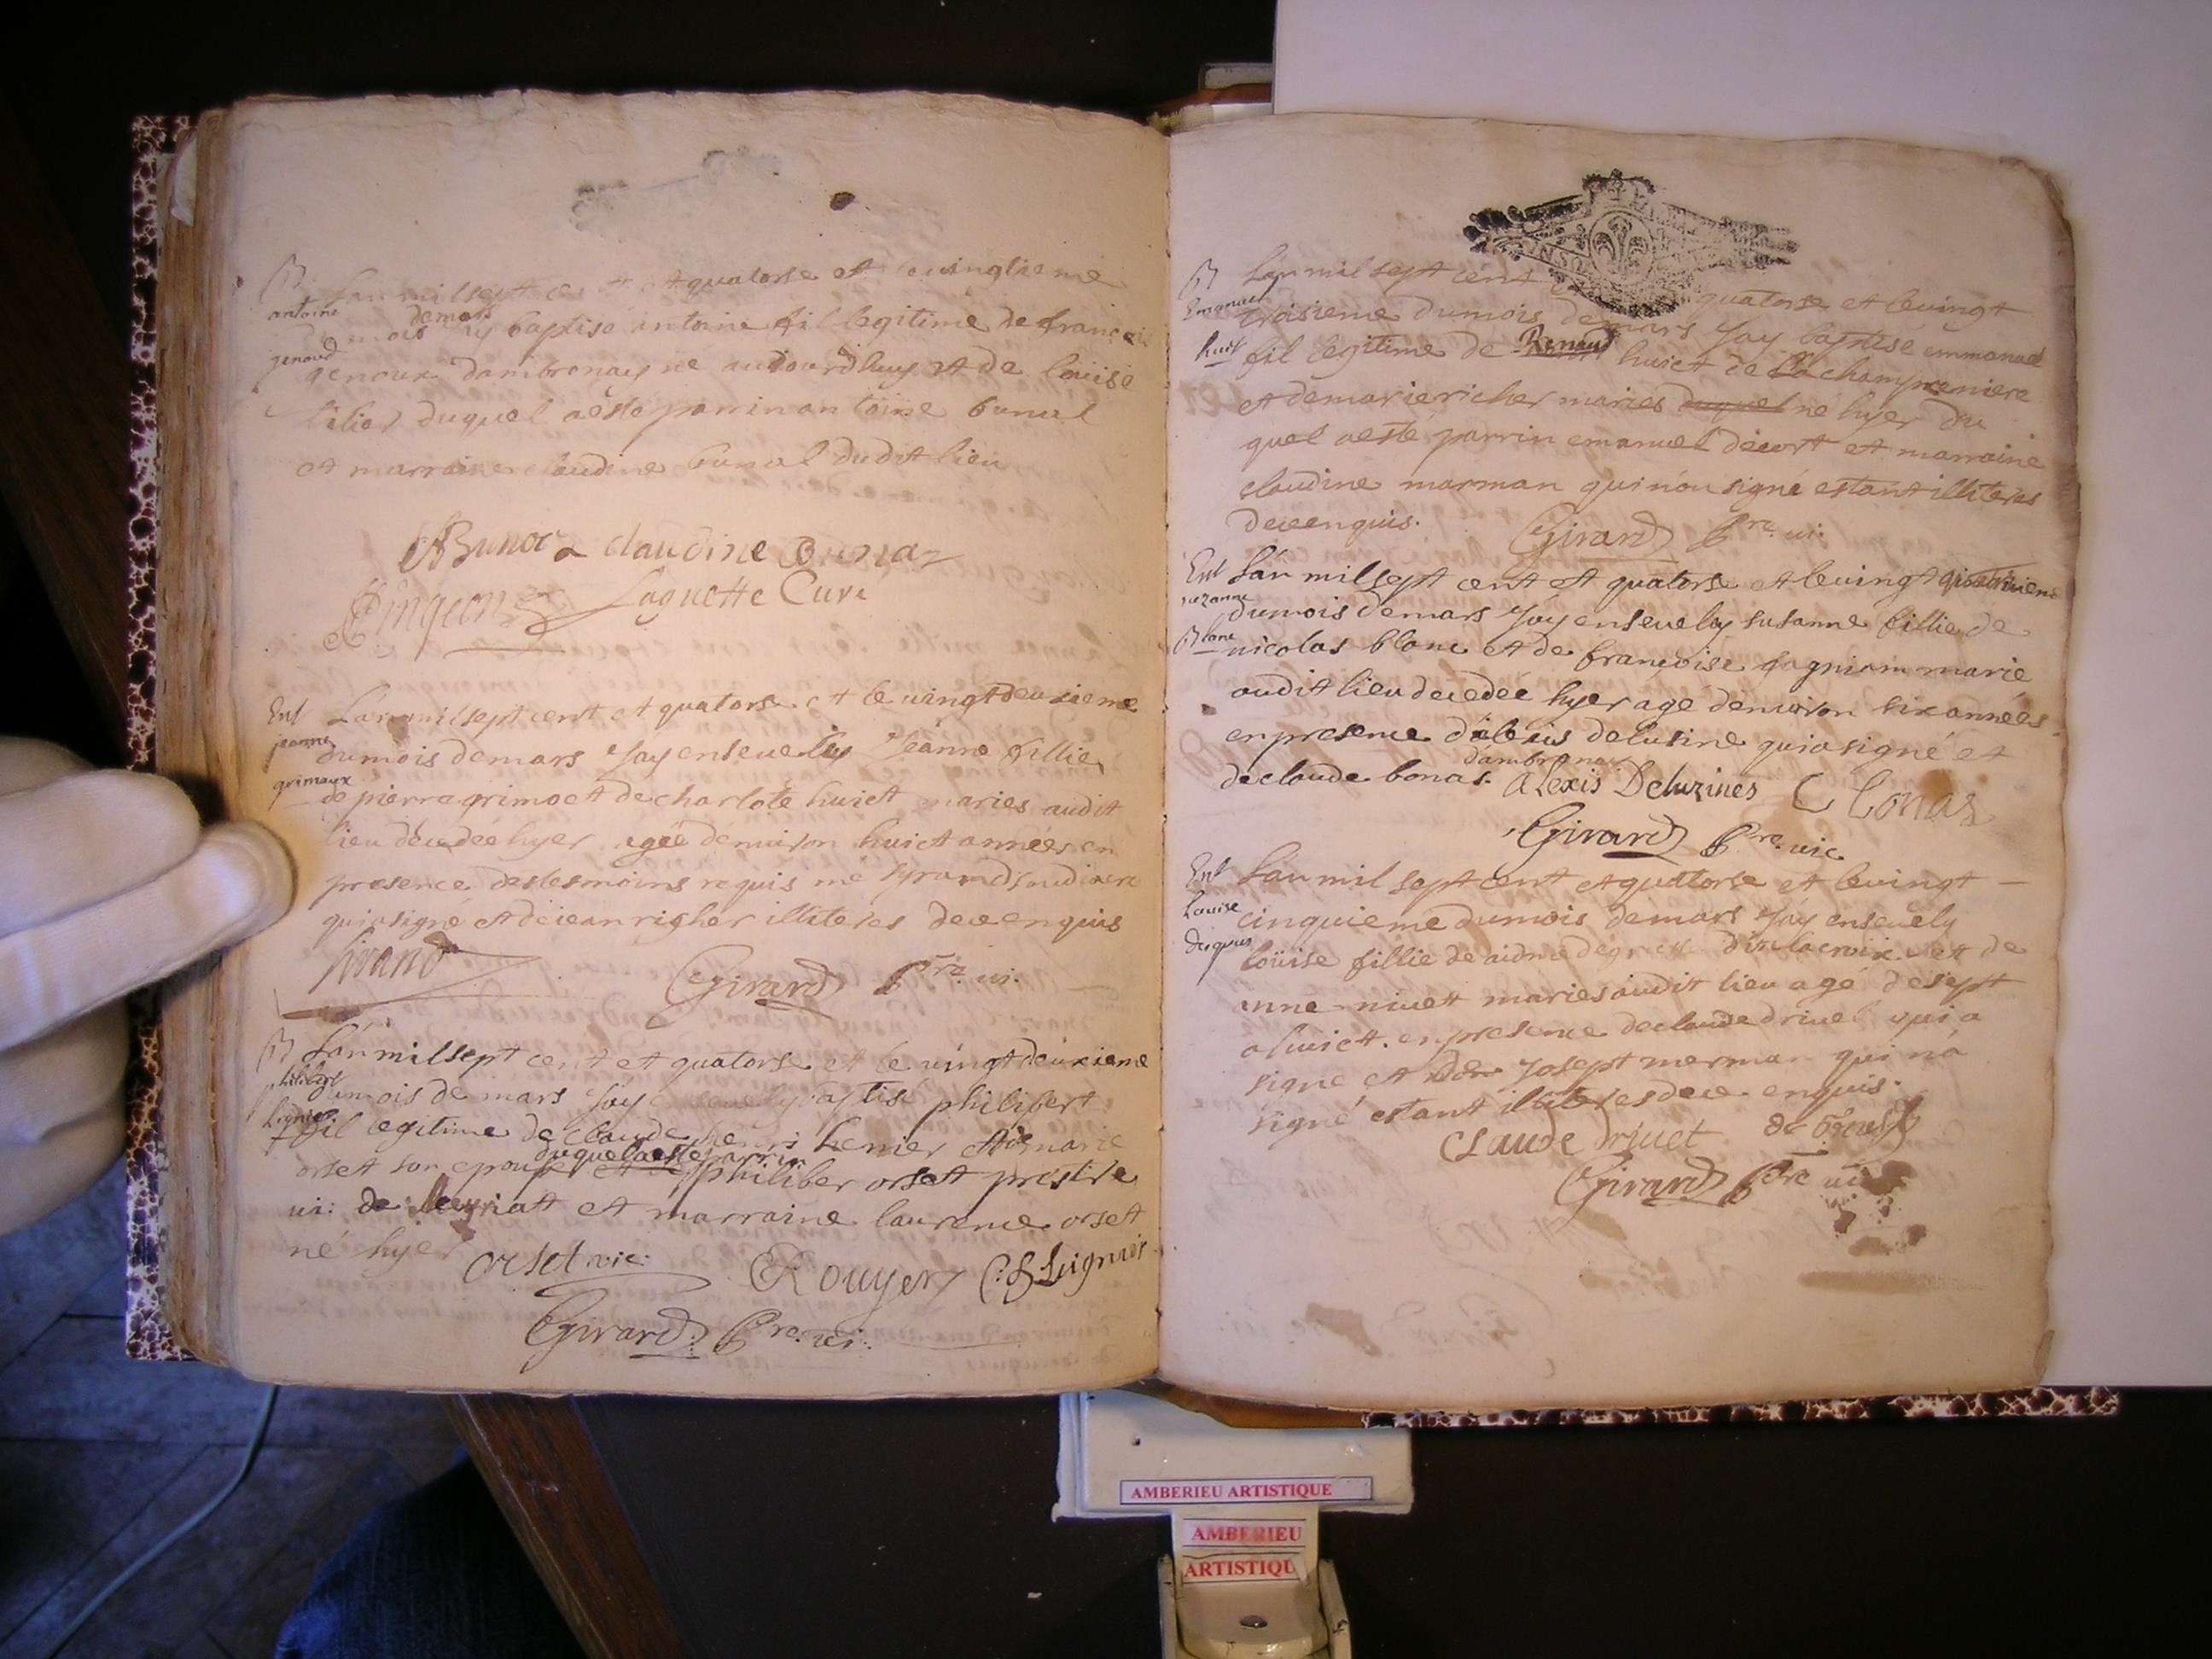 B
antoine
genoud
Lan mil sept cent et quatorse et le vinglieme
demars
du mois jay baptisé antoine fil legitime de françois
genoux dambronay né audjourdhuy et de louise
duquel a esté parrin antoine bunod
et marraine claudine bunod dudit lieu
ABunod claudine Bunod
Laguette Curé
Ent
jeanne
grimaux
Lan mil sept cent et quatorse et le vingtdeuxieme
du mois de mars jay ensevely jeanne fillie
de pierre grimo et de charlote huict maries audit
lieu decedée hyer agée denviron huict années en
presence des tesmoins requis me
qui a signé et de jean richer illiteres de ce enquis
Girard Ptre vi.
B
philibert
Lan mil sept cent et quatorse et le vingt deuxieme
du mois de mars jay baptisé philibert
fil legitime de claude et de marie
duquel a esté parrin
orset son epouse philiber orset prestre
vi: de et marraine laurence orset
né hyer orset vic: Rouyer
Girard Ptre vi:
B
Emanuel
huit
Lan mil sept cent quatorse et le vingt
troisieme du mois de mars jay baptisé emmanuel
fil legitime de Renaud huict de la champreniere
et de marie richer maries duquel né hyer du
quel a esté parrin emanuel decort et marraine
claudine marman qui non signé estant illiteres
de ce enquis. Girard Ptre vi:
Ent
suzanne
Blanc
Lan mil sept cent et quatorse et le vingt quatrieme
du mois de mars jay ensevely susanne fillie de
nicolas blanc et de françoise marie
audit lieu decedée hyer agé denviron six années
en presence dalexis delusine qui a signé et
dambronay
de claude bonas. alexis Deluzines C bonaz
Girard Ptre vic
Ent
Louise
Lan mil sept cent et quatorse et le vingt
cinquieme du mois de mars jay ensevely
loüise fillie de dit lacroix et de
anne nivett maries audit lieu agé de sept
a huict. en presence de claude drivet qui a
signé et de josept merman qui na
signé estant illiteres de ce enquis.
Claude drivet
Girard Ptre vi
AMBERIEU ARTISTIQUE
AMBERIEU
ARTISTIQU